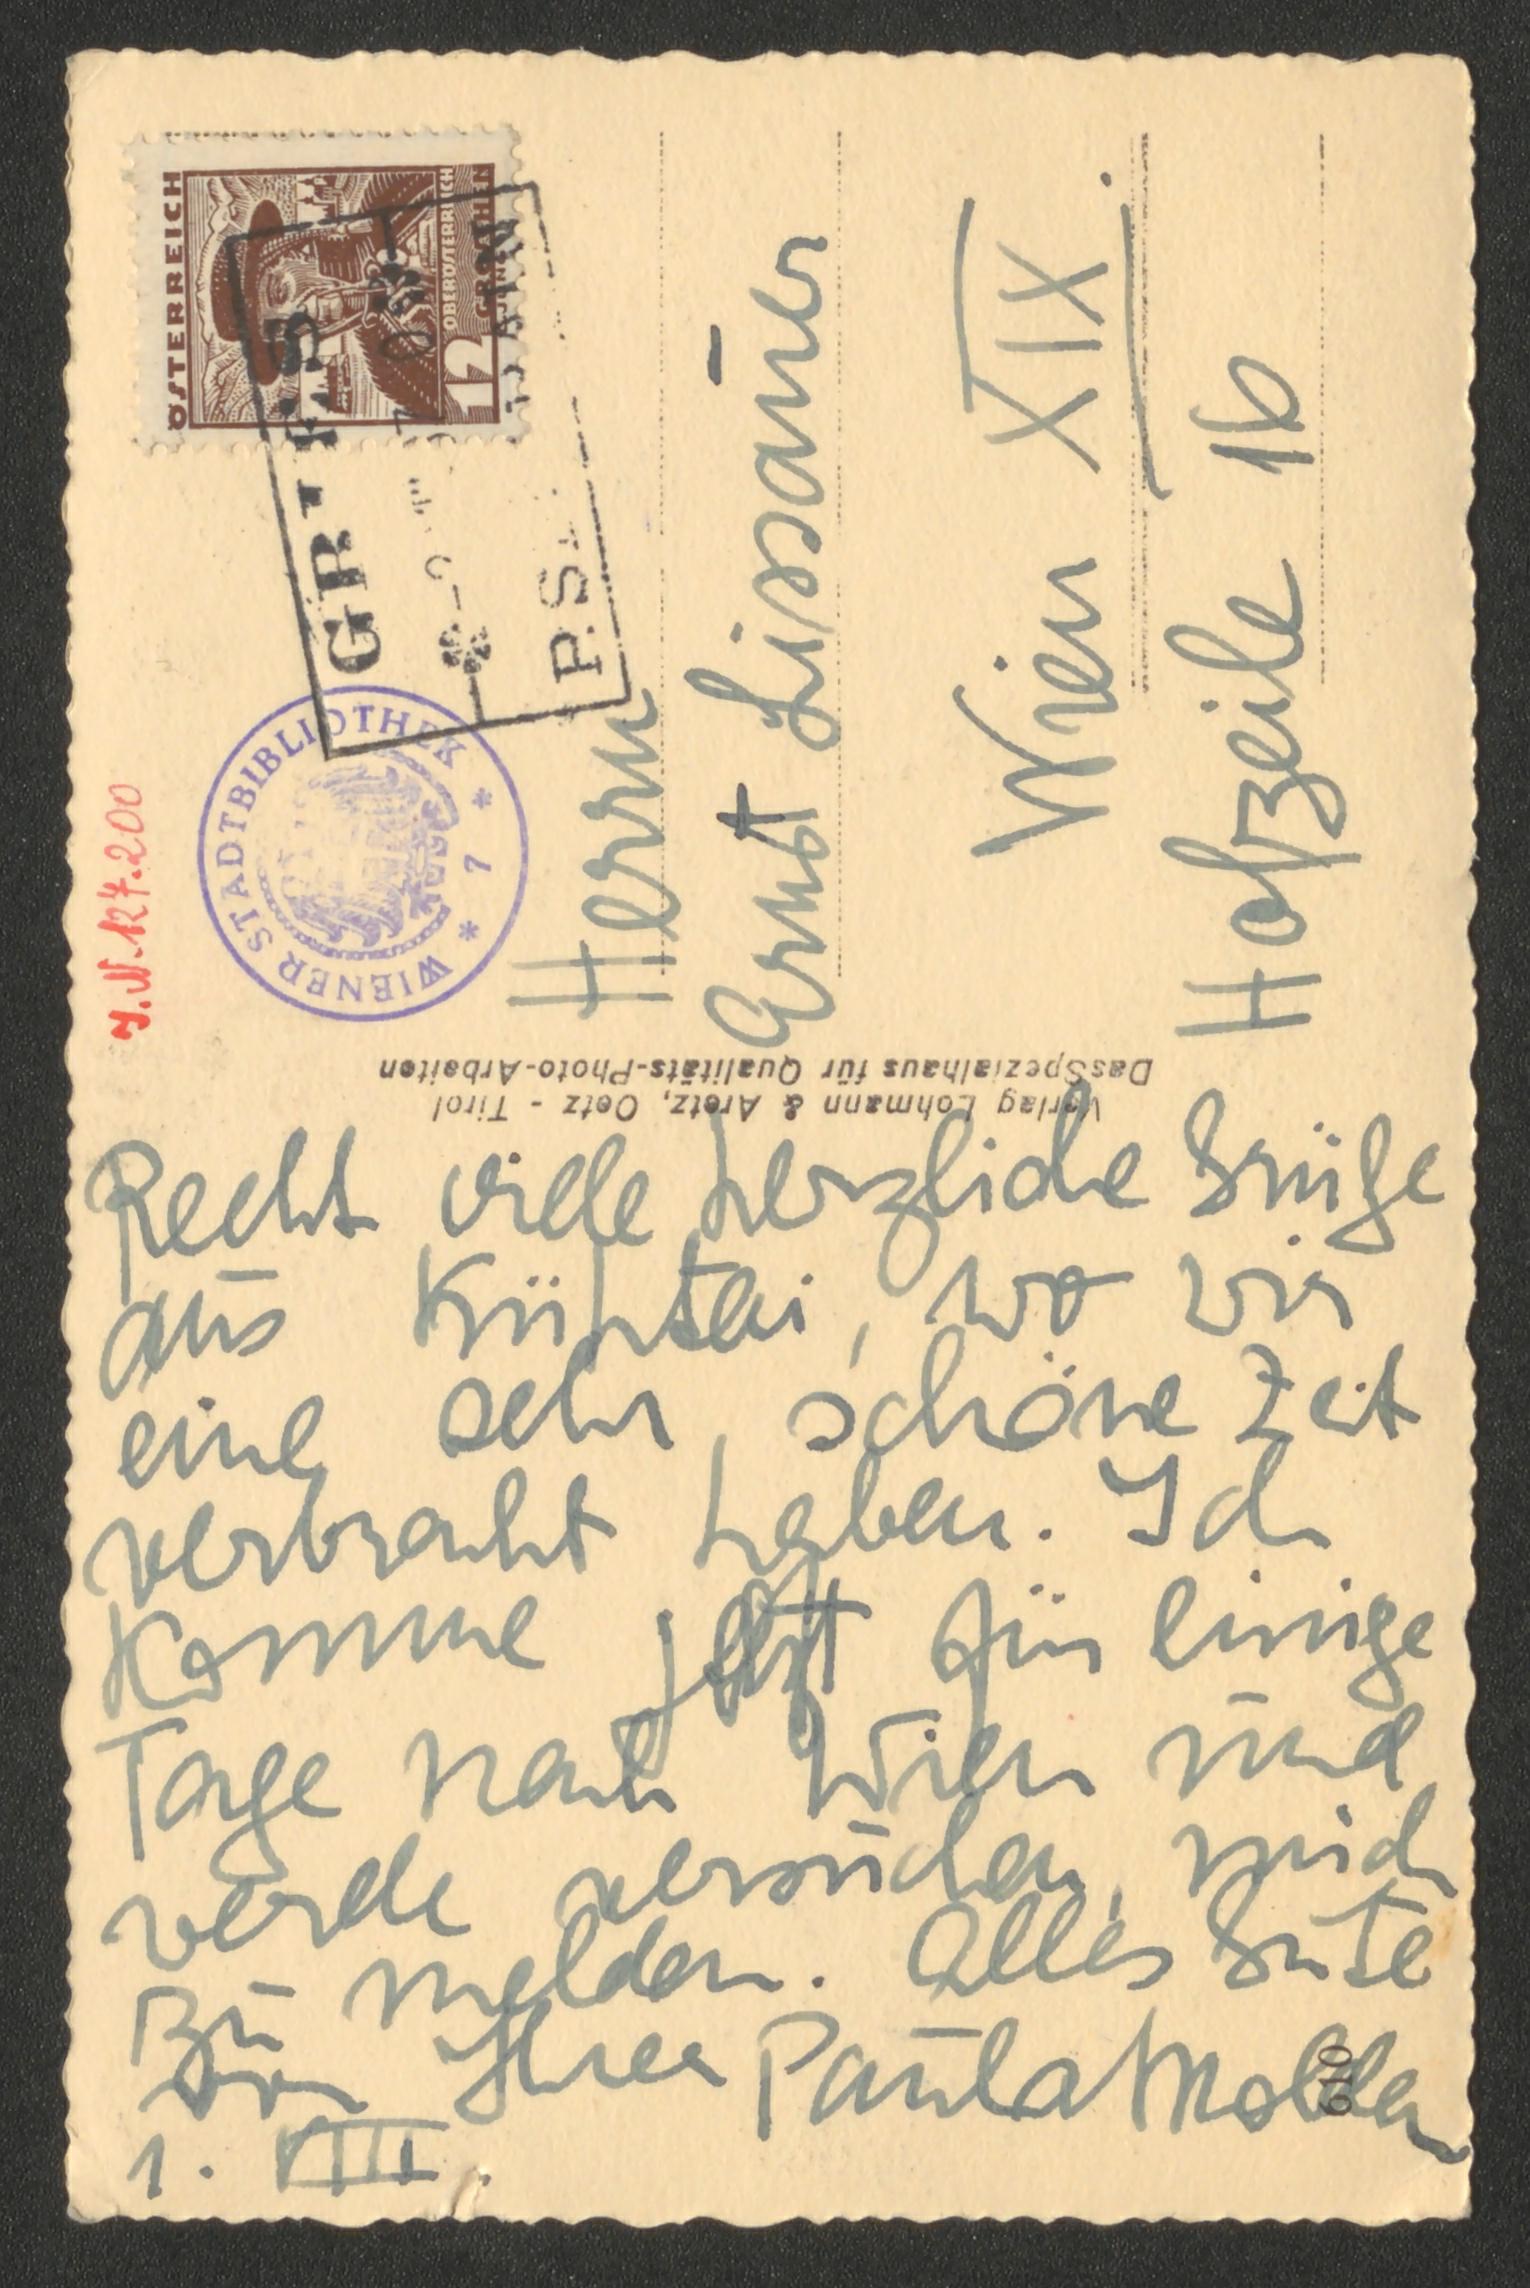 J.N.127.200
WIENER STADTBIBLIOTHEK
* 7 *
ÖSTERREICH
OBERÖSTERREICH
12 GROSCHEN
GR
P.S.
Herrn
Ernst Lissauer
Wien XIX.
Hofzeile 16
Verlag Lohmann & Aretz, Oetz - Tirol
Das Spezialhaus für Qualitäts-Photo-Arbeiten
Recht viele herzliche Grüße
aus Kühtai, wo wir
eine sehr schöne Zeit
verbracht haben. Ich
komme jetzt für einige
Tage nach Wien und
werde versuchen, mich
zu melden. Alles Gute
von Ihrer Paula Molden
1. VIII.
610